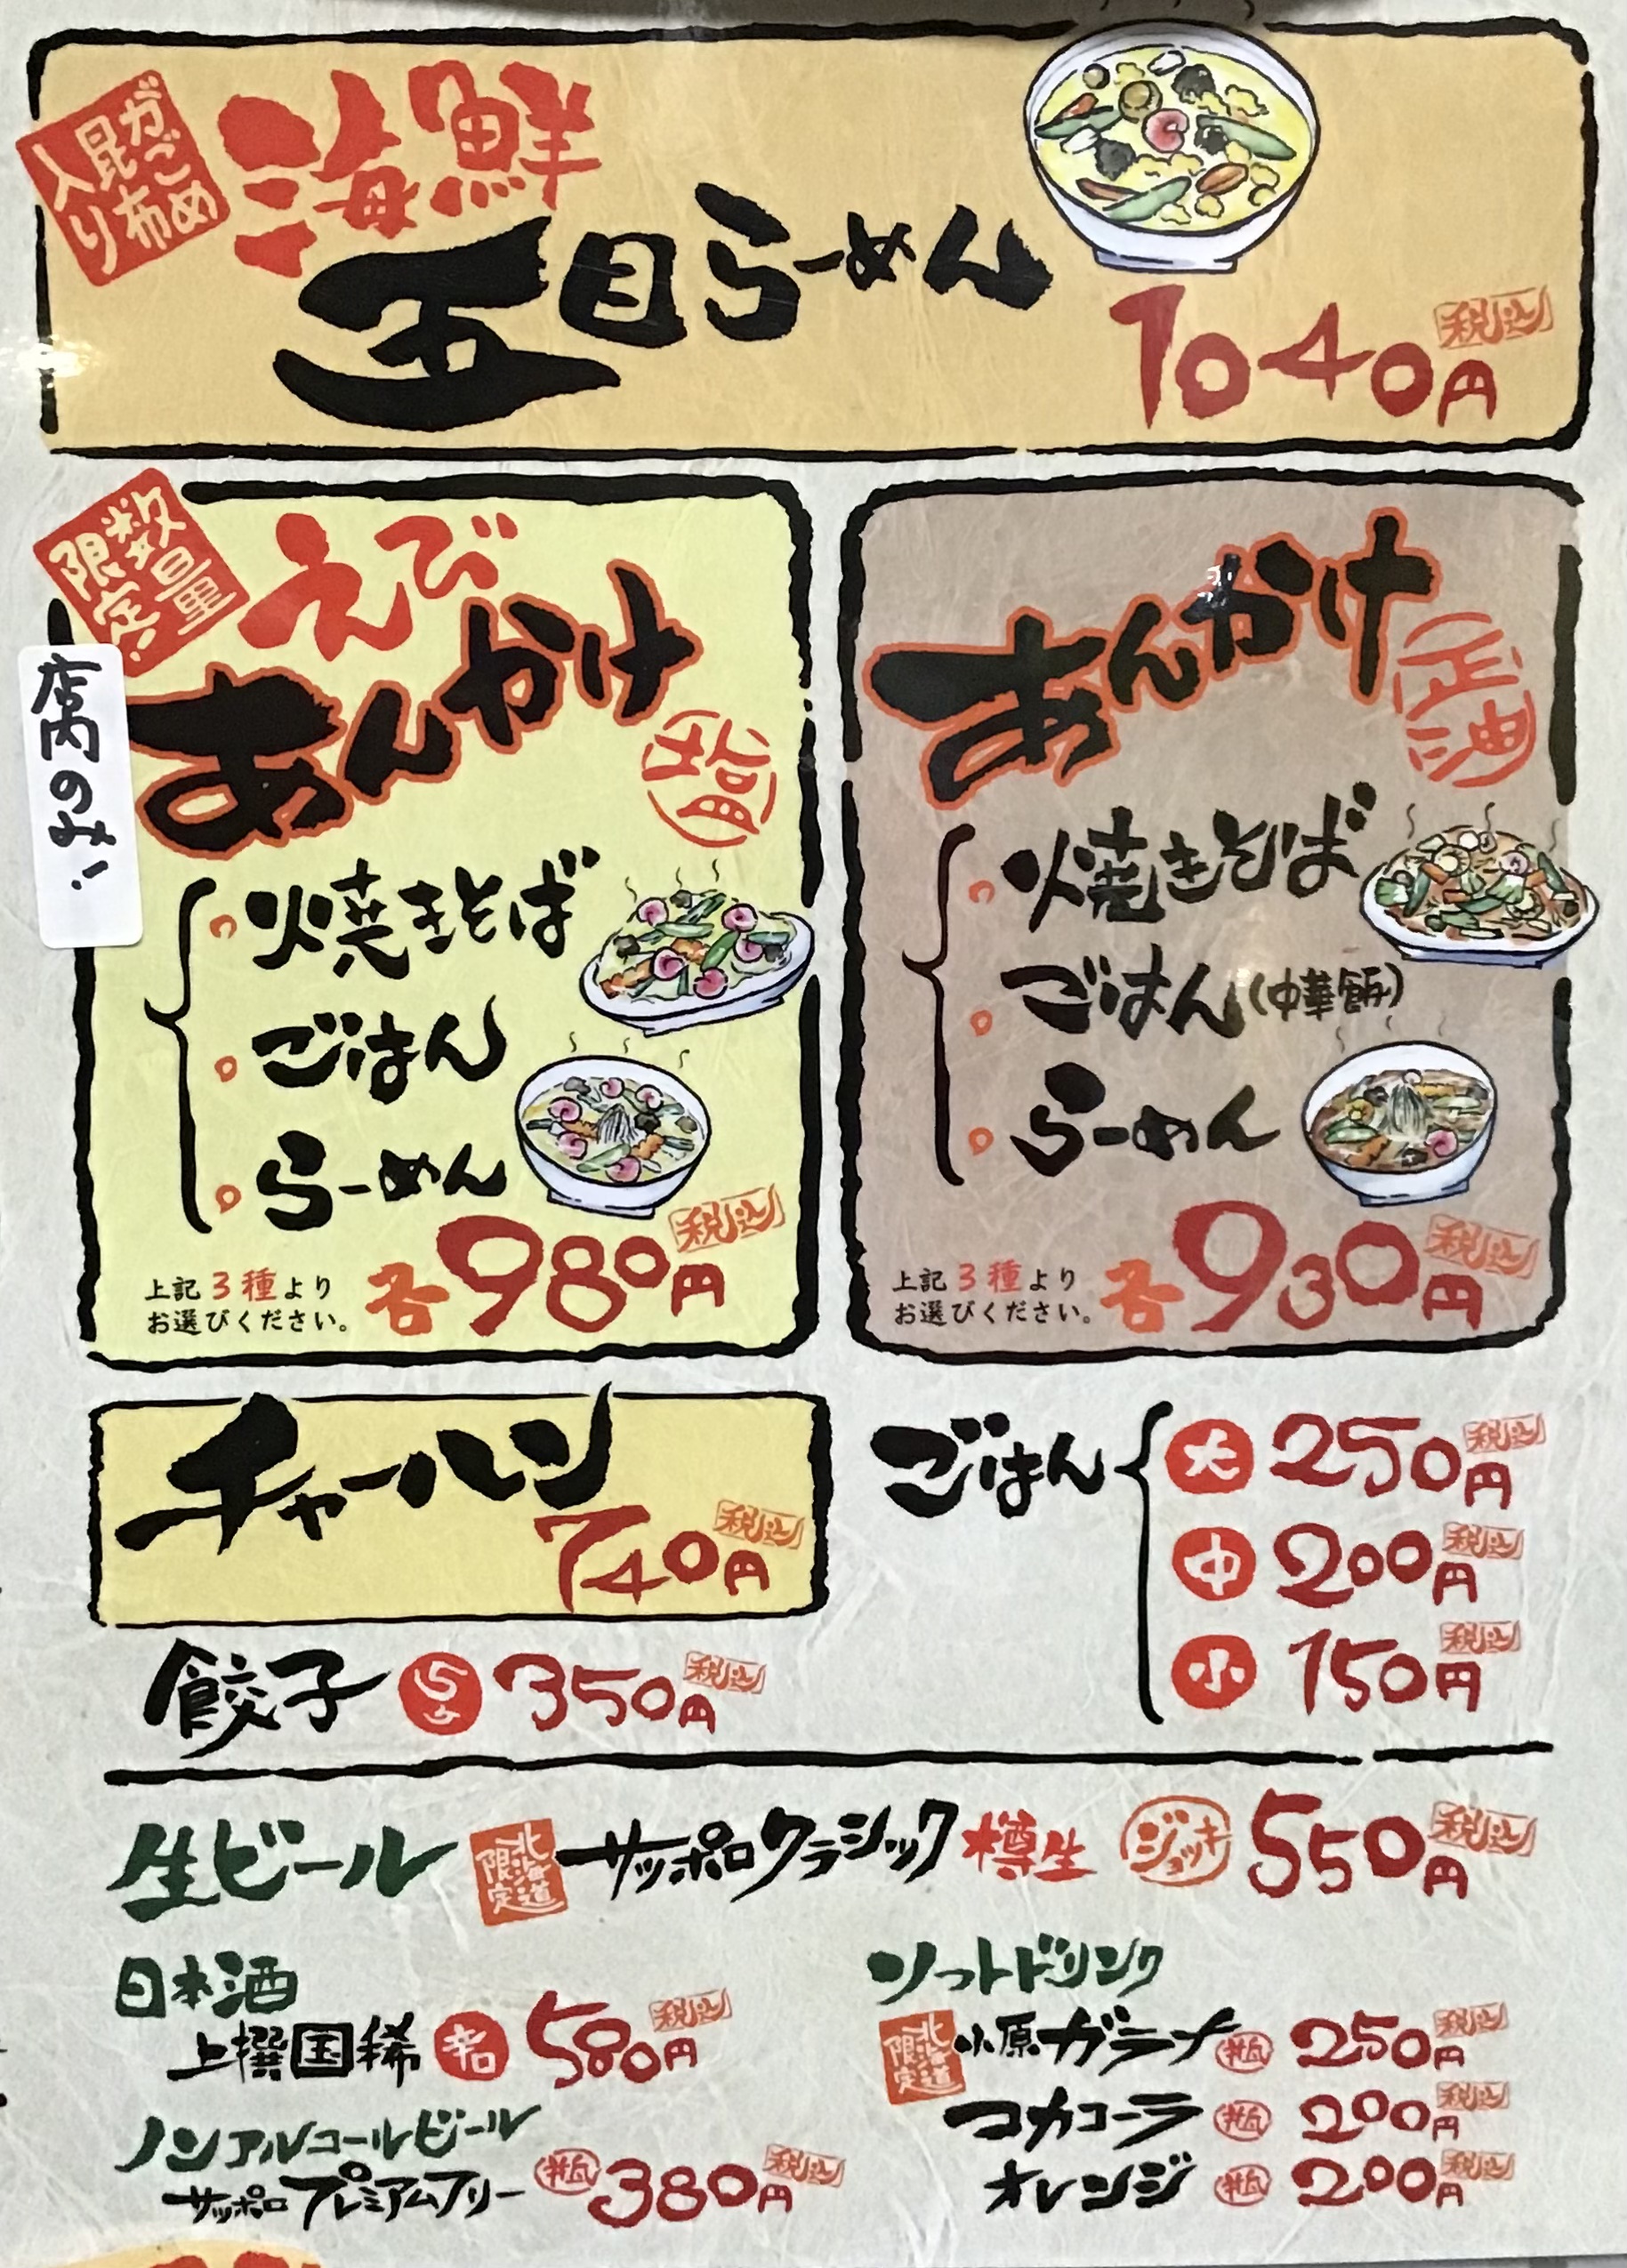 がごめ
昆布
入り
海鮮
五目らーめん
1040円 税込
数量
限定!
店内のみ!
えび
あんかけ
塩
焼きそば
ごはん
らーめん
上記3種より
お選びください。
各980円 税込
あんかけ
正油
焼きそば
ごはん(中華飯)
らーめん
上記3種より
お選びください。
各930円 税込
チャーハン
740円 税込
ごはん
大 250円 税込
中 200円 税込
小 150円 税込
餃子 5コ 350円 税込
生ビール 北海道限定 サッポロクラシック 樽生 ジョッキ 550円 税込
日本酒
上撰国稀 辛口 580円 税込
ノンアルコールビール
サッポロプレミアムフリー 瓶 380円 税込
ソフトドリンク
北海道限定 小原ガラナ 瓶 250円 税込
コカコーラ 瓶 200円 税込
オレンジ 瓶 200円 税込